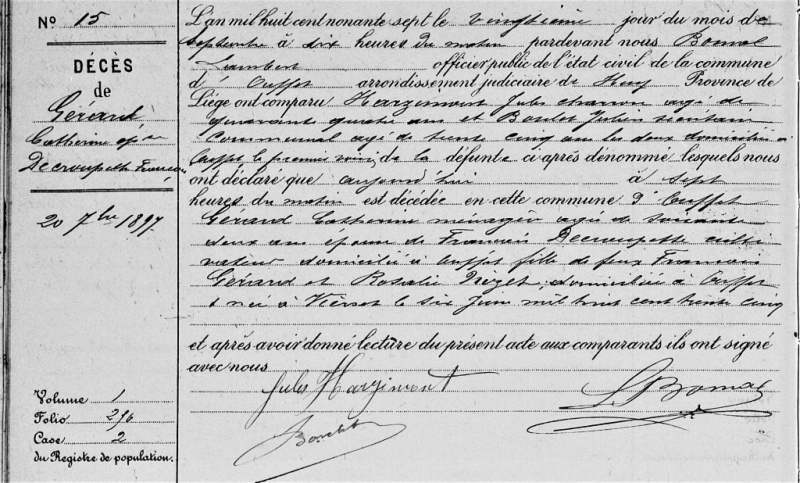 No 15
DÉCÈS
de
Gérard
Catherine
Decroupette François
20 7bre 1897
Volume 1
Folio 296
Case 2
du Registre de population.
L'an mil huit cent nonante sept le vingtième jour du mois de
septembre à dix heures du matin pardevant nous Bomal
Lambert officier public de l'état civil de la commune
d'Ouffet arrondissement judiciaire de Huy Province de
Liége ont comparu Hargimont Jules charron agé de
quarante quatre ans et Boulet Julien secrétaire
communal agé de trente cinq ans les deux domiciliés à
Ouffet le premier voisin de la défunte ci après dénommé lesquels nous
ont déclaré que aujourd'hui à sept
heures du matin est décédée en cette commune d'Ouffet
Gérard Catherine ménagère agée de soixante
deux ans épouse de François Decroupette culti
vateur domicilié à Ouffet fille de feux François
Gérard et Rosalie domiciliée à Ouffet
née à le six Juin mil huit cent trente cinq
et après avoir donné lecture du présent acte aux comparants ils ont signé
avec nous
Jules Hargimont
L. Bomal
Boulet